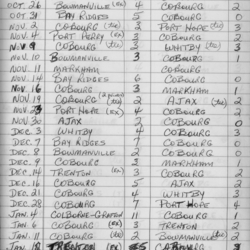 OCT. 26 BOWMANVILLE (ex) 4 COBOURG 2
OCT 31 BAY RIDGES 5 COBOURG 0
NOV. 2 COBOURG (ex) 3 OSHAWA 3
NOV. 4 PORT PERRY (ex) 4 COBOURG 3
NOV 9 COBOURG (ex) 3 WHITBY 3
NOV. 10 BOWMANVILLE 3 COBOURG 1
NOV. 11 MARKHAM COBOURG
NOV. 14 BAY RIDGES 6 COBOURG 0
NOV. 16 COBOURG 3 MARKHAM 1
NOV. 19 COBOURG 2 AJAX (ex) 2
NOV. 23 PORT HOPE (ex) 4 COBOURG 2
NOV. 30 AJAX COBOURG 0
DEC. 3 WHITBY 4 COBOURG 3
DEC. 7 BAY RIDGES 7 COBOURG 0
DEC. 8 BOWMANVILLE 2 COBOURG 0
DEC. 9 COBOURG MARKHAM
DEC. 14 TRENTON (ex) 3 COBOURG 2
DEC. 16 COBOURG 5 AJAX 0
DEC. 21 COBOURG 4 WHITBY 3
DEC. 28 COBOURG 7 PORT HOPE 4
JAN. 4 COLBORNE-GRAFTON 11 COBOURG 1
JAN. 6 COBOURG (ex) 3 TRENTON 3
JAN. 11 COBOURG (ex) 2 BOWMANVILLE 2
JAN. 18 TRENTON (ex) 5 COBOURG 3